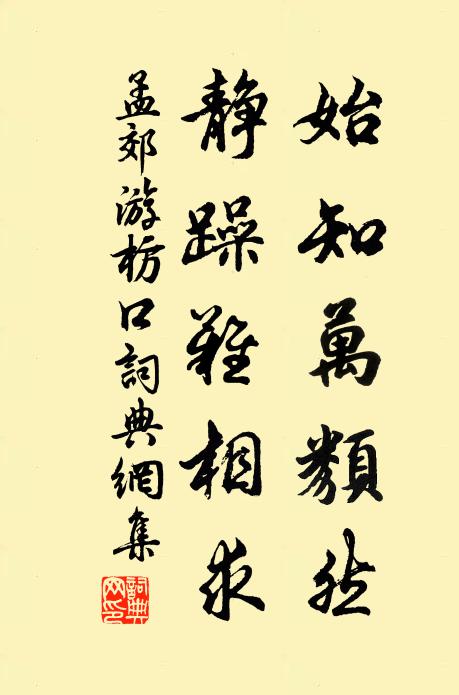 始知萬類然
静躁難相求
孟郊游枋口詞典網集
詞典网印